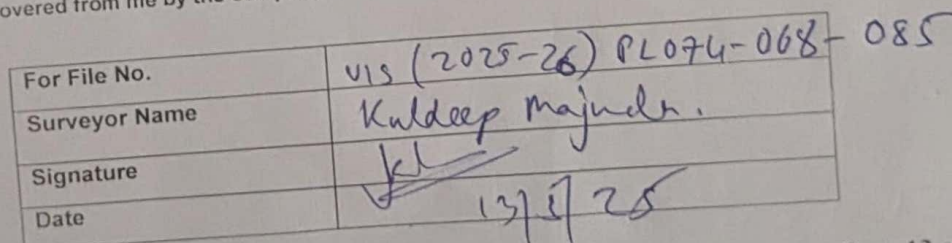 overed from me by the
For File No. VIS (2025-26) PL074-068-085
Surveyor Name Kuldeep Majundr.
Signature
Date 13/5/25